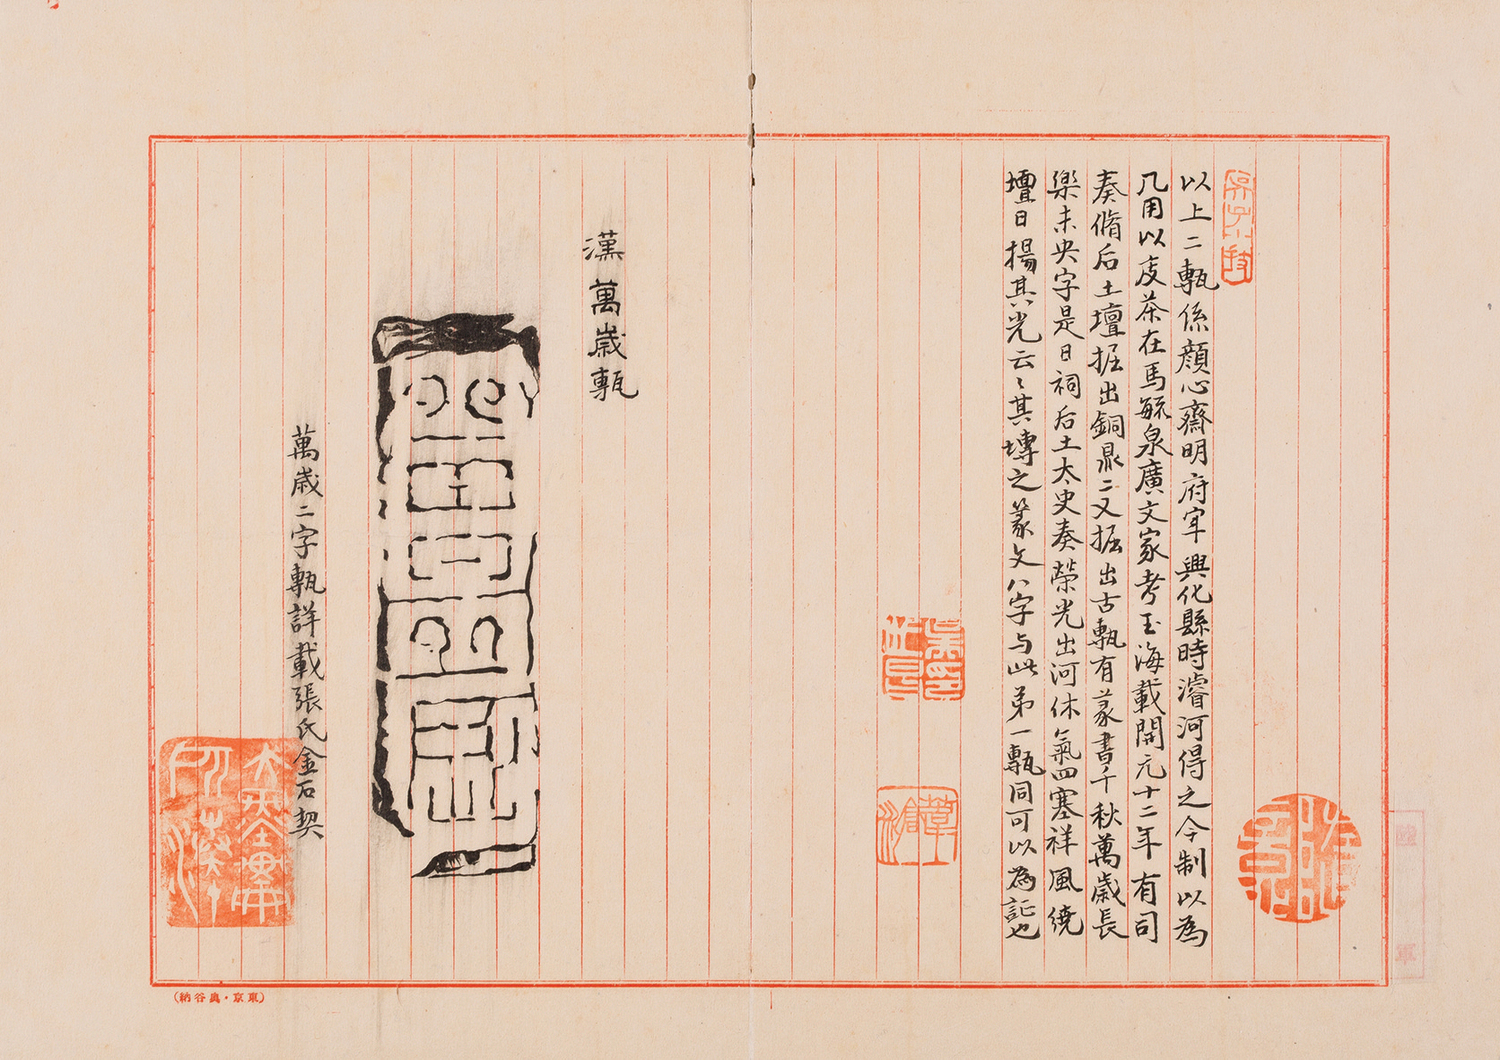 以上二甎係顏心齋明府宰興化縣時濬河得之今制以為
几用以庋茶在馬毓泉廣文家考玉海載開元十二年有司
奏脩后土壇掘出銅鼎二又掘出古甎有篆書千秋萬歲長
樂未央字是日祠后土太史奏榮光出河休氣四塞祥風繞
壇日揚其光云〻其塼之篆文八字与此第一甎同可以為証也
漢萬歲甎
萬歲二字甎詳載張氏金石契
(東京・奥谷納)